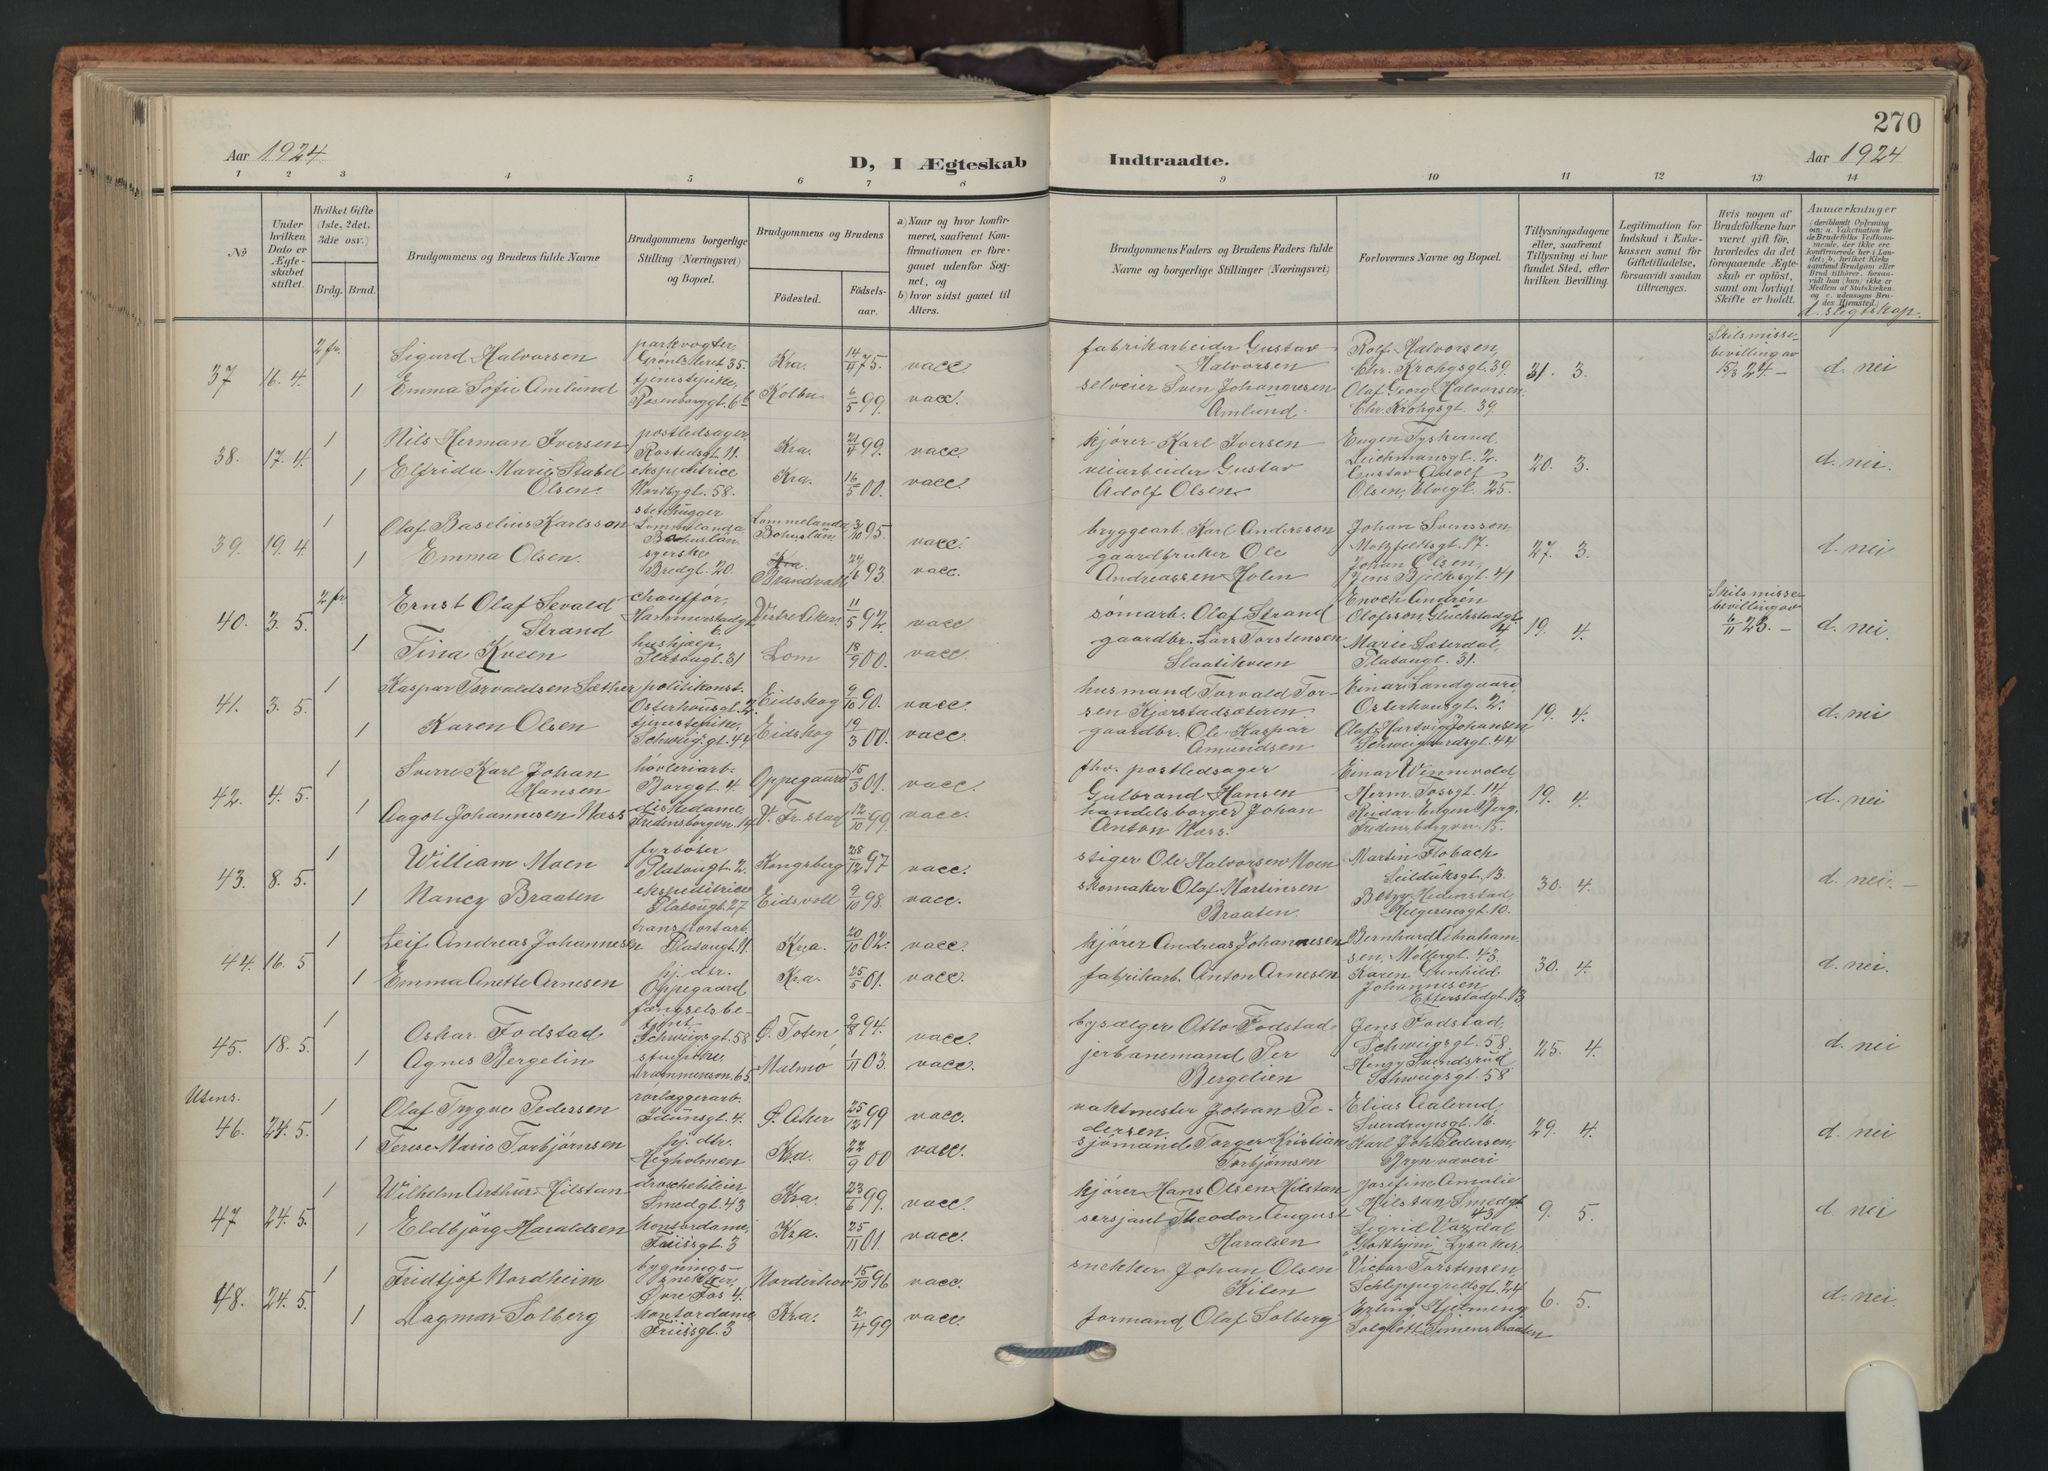 270
Aar 1924
D, I Ægteskab
Indtraadte.
Aar 1924
1 2 3 4 5 6 7 8 9 10 11 12 13 14
No
Under hvilken Dato er Ægteskabet stiftet.
Hvilket Gifte (1ste, 2det, 3die osv.)
Brdg. Brud.
Brudgommens og Brudens fulde Navne
Brudgommens borgerlige Stilling (Næringsvei) og Bopæl.
Brudgommens og Brudens
Fødested.
Fødselsaar.
a) Naar og hvor konfirmeret, saafremt Konfirmationen er foregaaet udenfor Sognet, og
b) hvor sidst gaaet til Alters.
Brudgommens Faders og Brudens Faders fulde Navne og borgerlige Stillinger (Næringsvei)
Forlovernes Navne og Bopæl.
Tillysningsdagene eller, saafremt Tillysning ei har fundet Sted, efter hvilken Bevilling.
Legitimation for Indskud i Enkekassen samt for Giftetilladelse, forsaavidt saadan tiltrænges.
Hvis nogen af Brudefolkene har været gift før, hvorledes da det foregaaende Ægteskab er opløst, samt om lovligt Skifte er holdt.
Anmærkninger
d. slegtskap.
37 16. 4. 2 fr. Sigurd Halvorsen parkvogter, Grønlsleret 35. Kra. 14/4 75. vacc. fabrikarbeider Gustav Halvorsen Rolf Halvorsen, Chr. Krohgsgt. 39. 31. 3. Skilsmissebevilling av 15/3 24. – d. nei
1 Emma Sofie Amlund tjenestepike, Rosenborggt. 6 b Kolbu 6/5 99. vacc. selveier Sven Johannesen Amlund. Olaf Georg Halvorsen, Chr. Krohgsgt. 39.
38. 17. 4. 1 Nils Herman Iversen postledsager, Rostedsgt. 11. Kra. 21/4 99. vacc. kjører Karl Iversen Eugen Tyskerud, Deichmansgt. 2. 20. 3. d. nei.
1 Elfrida Marie Stabel Olsen ekspeditrice Nordbygt. 58. Kra. 16/5 00. vacc. veiarbeider Gustav Adolf Olsen Gustav Adolf Olsen, Elvegt. 25.
39. 19. 4 1 Olaf Baselius Karlsson stenhugger Lommelanda Bohuslän Lommelanda Bohuslän 3/10 95. vacc. bryggearb. Karl Andersson Johan Svensson Motzfeldtsgt. 17. 27. 3. d. nei
1 Emma Olsen syerske Bredgt. 20. Brandval 24/6 93 vacc. gaardbruker Ole Andreassen Holen Johan Olsen, Jens Bjelkesgt. 41
40. 3. 5. 2 fr. Ernst Olaf Sevald Strand chauffør, Hammerstadgt. 6. Vestre Aker 11/5 92. vacc sømarb. Olaf Strand Enoch Andrén Olofsson, Glückstadgt. 4 19. 4. Skilsmissebevilling av 6/11 23. – d. nei.
1 Tina Kveen hushjælp, Platougt. 31 Lom 18/9 00. vacc. gaardbr. Lars Torstensen Slaatikveen Marie Sæterdal, Platougt. 31.
41. 3. 5. 1 Kaspar Torvaldsen Sæther politikonst. Osterhausgt. 2. Eidskog 9/10 90. vacc. husmand Torvald Torsen Kjærstadsæteren Einar Landgaard, Osterhausgt. 2. 19. 4. d. nei
1 Karen Olsen tjenestepike, Schweig.gt. 44 Eidskog 19/3 00. vacc gaardbr. Ole Kaspar Amundsen Olaf Hartvig Johansen Schweigaardsgt. 44
42. 4. 5. 1 Sverre Karl Johan Hansen høvleriarb. Borggt. 4 Oppegaard 15/3 01. vacc. fhv. postledsager Gulbrand Hansen Einar Wennevold, Herm. Fossgt. 14. 19. 4. d. nei
1 Aagot Johannesen Næss diskedame, Fredensborgvn. 14 V. Fr.stad 12/10 99. vacc. handelsborger Johan Anton Næss. Reidar Eugen Berg, Fredensborgvn. 15.
43. 8. 5. 1 William Moen fyrbøter Platougt. 2. Kongsberg 28/12 97 vacc. stiger Ole Halvorsen Moen Martin Flobach Seilduksgt. 13. 30. 4. d. nei. –
1 Nancy Braaten ekspeditrice Platougt. 27 Eidsvoll 9/10 98. vacc. skomaker Olaf Martinsen Braaten. Hedenstad, Helgesensgt. 10.
44. 16. 5 1 Leif Andreas Johannesen transportarb. Platougt. 11. Kra. 20/10 02. vacc. kjører Andreas Johannesen Bernhard Abrahamsen, Møllergt. 43. 30. 4. d. nei.
1 Emma Anette Arnesen hj. dtr. Oppegaard Kra. 25/5 01. vacc. fabrikarb. Anton Arnesen Karen Gunhild Johannesen, Etterstadgt. 13
45. 18. 5. 1 Oskar Fodstad fængselsbetjent Schweigsgt. 58 Ø. Toten 9/8 94. vacc. bysælger Otto Fodstad Jens Fodstad, Schweigsgt. 58. 25. 4. d. nei
1 Agnes Bergelin stuepike Drammensvn. 65 Malmø 1/11 03. vacc. jernbanemand Per Bergelien Henry Sundsrud Schweigsgt. 58
Utens. 46. 24. 5. 1 Olaf Trygve Pedersen rørlæggerarb. Idunsgt. 4. Ø. Aker 25/12 99 vacc. vaktmester Johan Pedersen Elias Aalerud, Sverdrupsgt. 16. 29. 4. d. nei
1 Terese Marie Torbjørnsen hj. dtr. Hegholmen Kra. 22/9 00 vacc. sjømand Torger Kristian Torbjørnsen Karl Joh. Pedersen, Bryn væveri
47 24. 5. 1 Wilhelm Arthur Hilstan droschebileier Smedgt. 43 Kra. 23/6 99. vacc. kjører Hans Olsen Hilstan Josefine Amalie Hilstan, Smedgt. 43 9. 5. d. nei
1 Eldbjörg Haraldsen kontordame, Friisgt. 3 Kra. 25/11 01. vacc. sersjant Theodor August Haralsen Sigrid Vardal "Slottheim" Lysaker.
48. 24. 5. 1 Fridtjof Nordheim bygningssnekker, Øvre Fos 4. Norderhov 15/10 96 vacc. snekker Johan Olsen Kilen Victor Torstensen, Schleppegrellsgt. 24 6. 5. d. nei.
1 Dagmar Solberg kontordame Friisgt. 3 Kra. 2/4 99 vacc. formand Olaf Solberg Erling Hjelmeng Solglött Simensbraaten